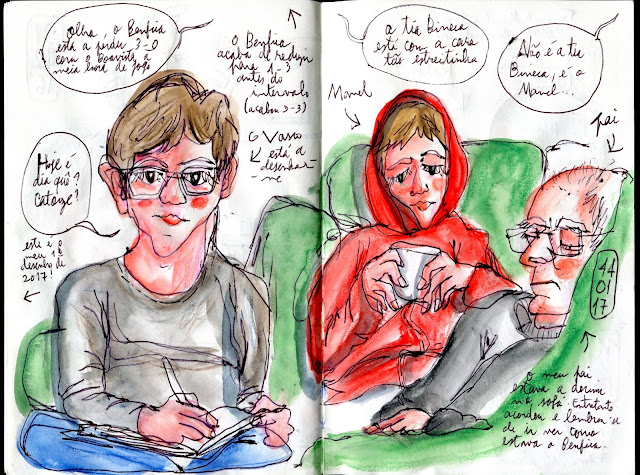 Olha, o Benfica
está a perder 3-0
com o Boavista, à
meia hora de jogo
o Benfica
acaba de reduzir
para 1-3
antes do
intervalo
(acabou 3-3)
o Vasco
está a
desenhar-
-me
Hoje é
dia quê?
Catorze?
este é o
meu 1º
desenho de
2017!
a tia Bineca
está com a cara
tão estreitinha
Não é a tia
Bineca, é o
Manel...
Manel
pai
14
01
17
o meu pai
estava a dormir
no sofá. Entretanto
acordou e lembrou-se
de ir ver como
estava o Benfica.